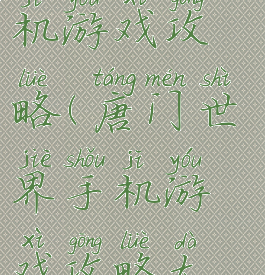 jī yóu xì gōng
机游戏攻
lüè táng mén shì
略(唐门世
jiè shǒu jī yóu
界手机游
xì gōng lüè dà
戏攻略大